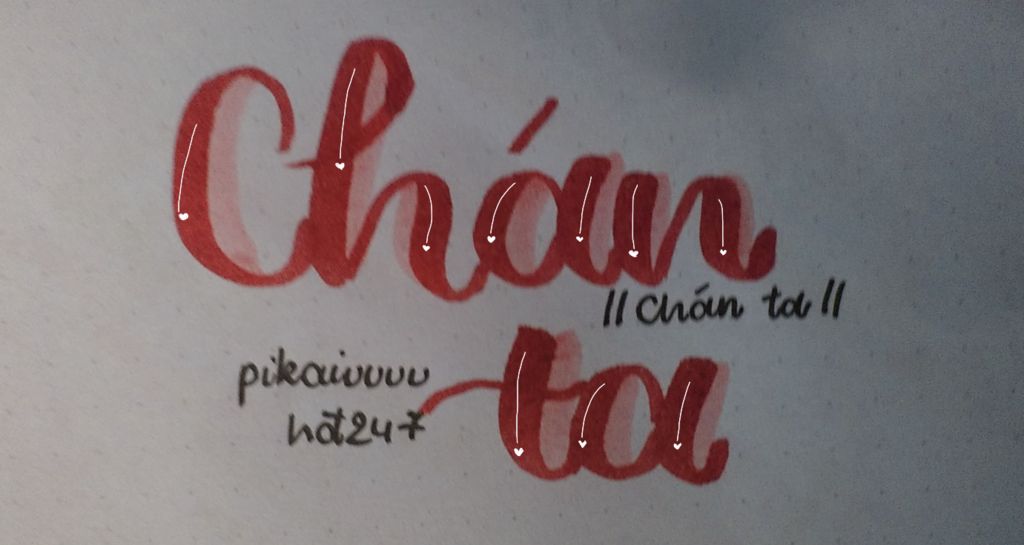 Chán
|| Chán ta ||
ta
pikaiuuuu
hất247